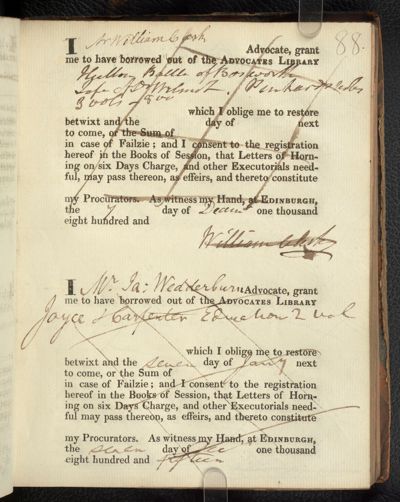 88.
I Mr William Clerk
Advocate, grant
me to have borrowed out of the ADVOCATES LIBRARY
Hutton Battle of Bosworth
Life of
3 vols of 8vo
which I oblige me to restore
betwixt and the day of next
to come, or the Sum of
in case of Failzie; and I consent to the registration
hereof in the Books of Session, that Letters of Horn-
ing on six Days Charge, and other Executorials need-
ful, may pass thereon, as effeirs, and thereto constitute
my Procurators. As witness my Hand, at EDINBURGH,
the 7 day of Decemr one thousand
eight hundred and
William Clerk
I Mr Ja: Wedderburn Advocate, grant
me to have borrowed out of the ADVOCATES LIBRARY
Joyce & Carpenter Education 2 vol
which I oblige me to restore
betwixt and the seven day of Jany next
to come, or the Sum of
in case of Failzie; and I consent to the registration
hereof in the Books of Session, that Letters of Horn-
ing on six Days Charge, and other Executorials need-
ful may pass thereon, as effeirs, and thereto constitute
my Procurators. As witness my Hand, at EDINBURGH,
the seven day of Dec one thousand
eight hundred and fifteen